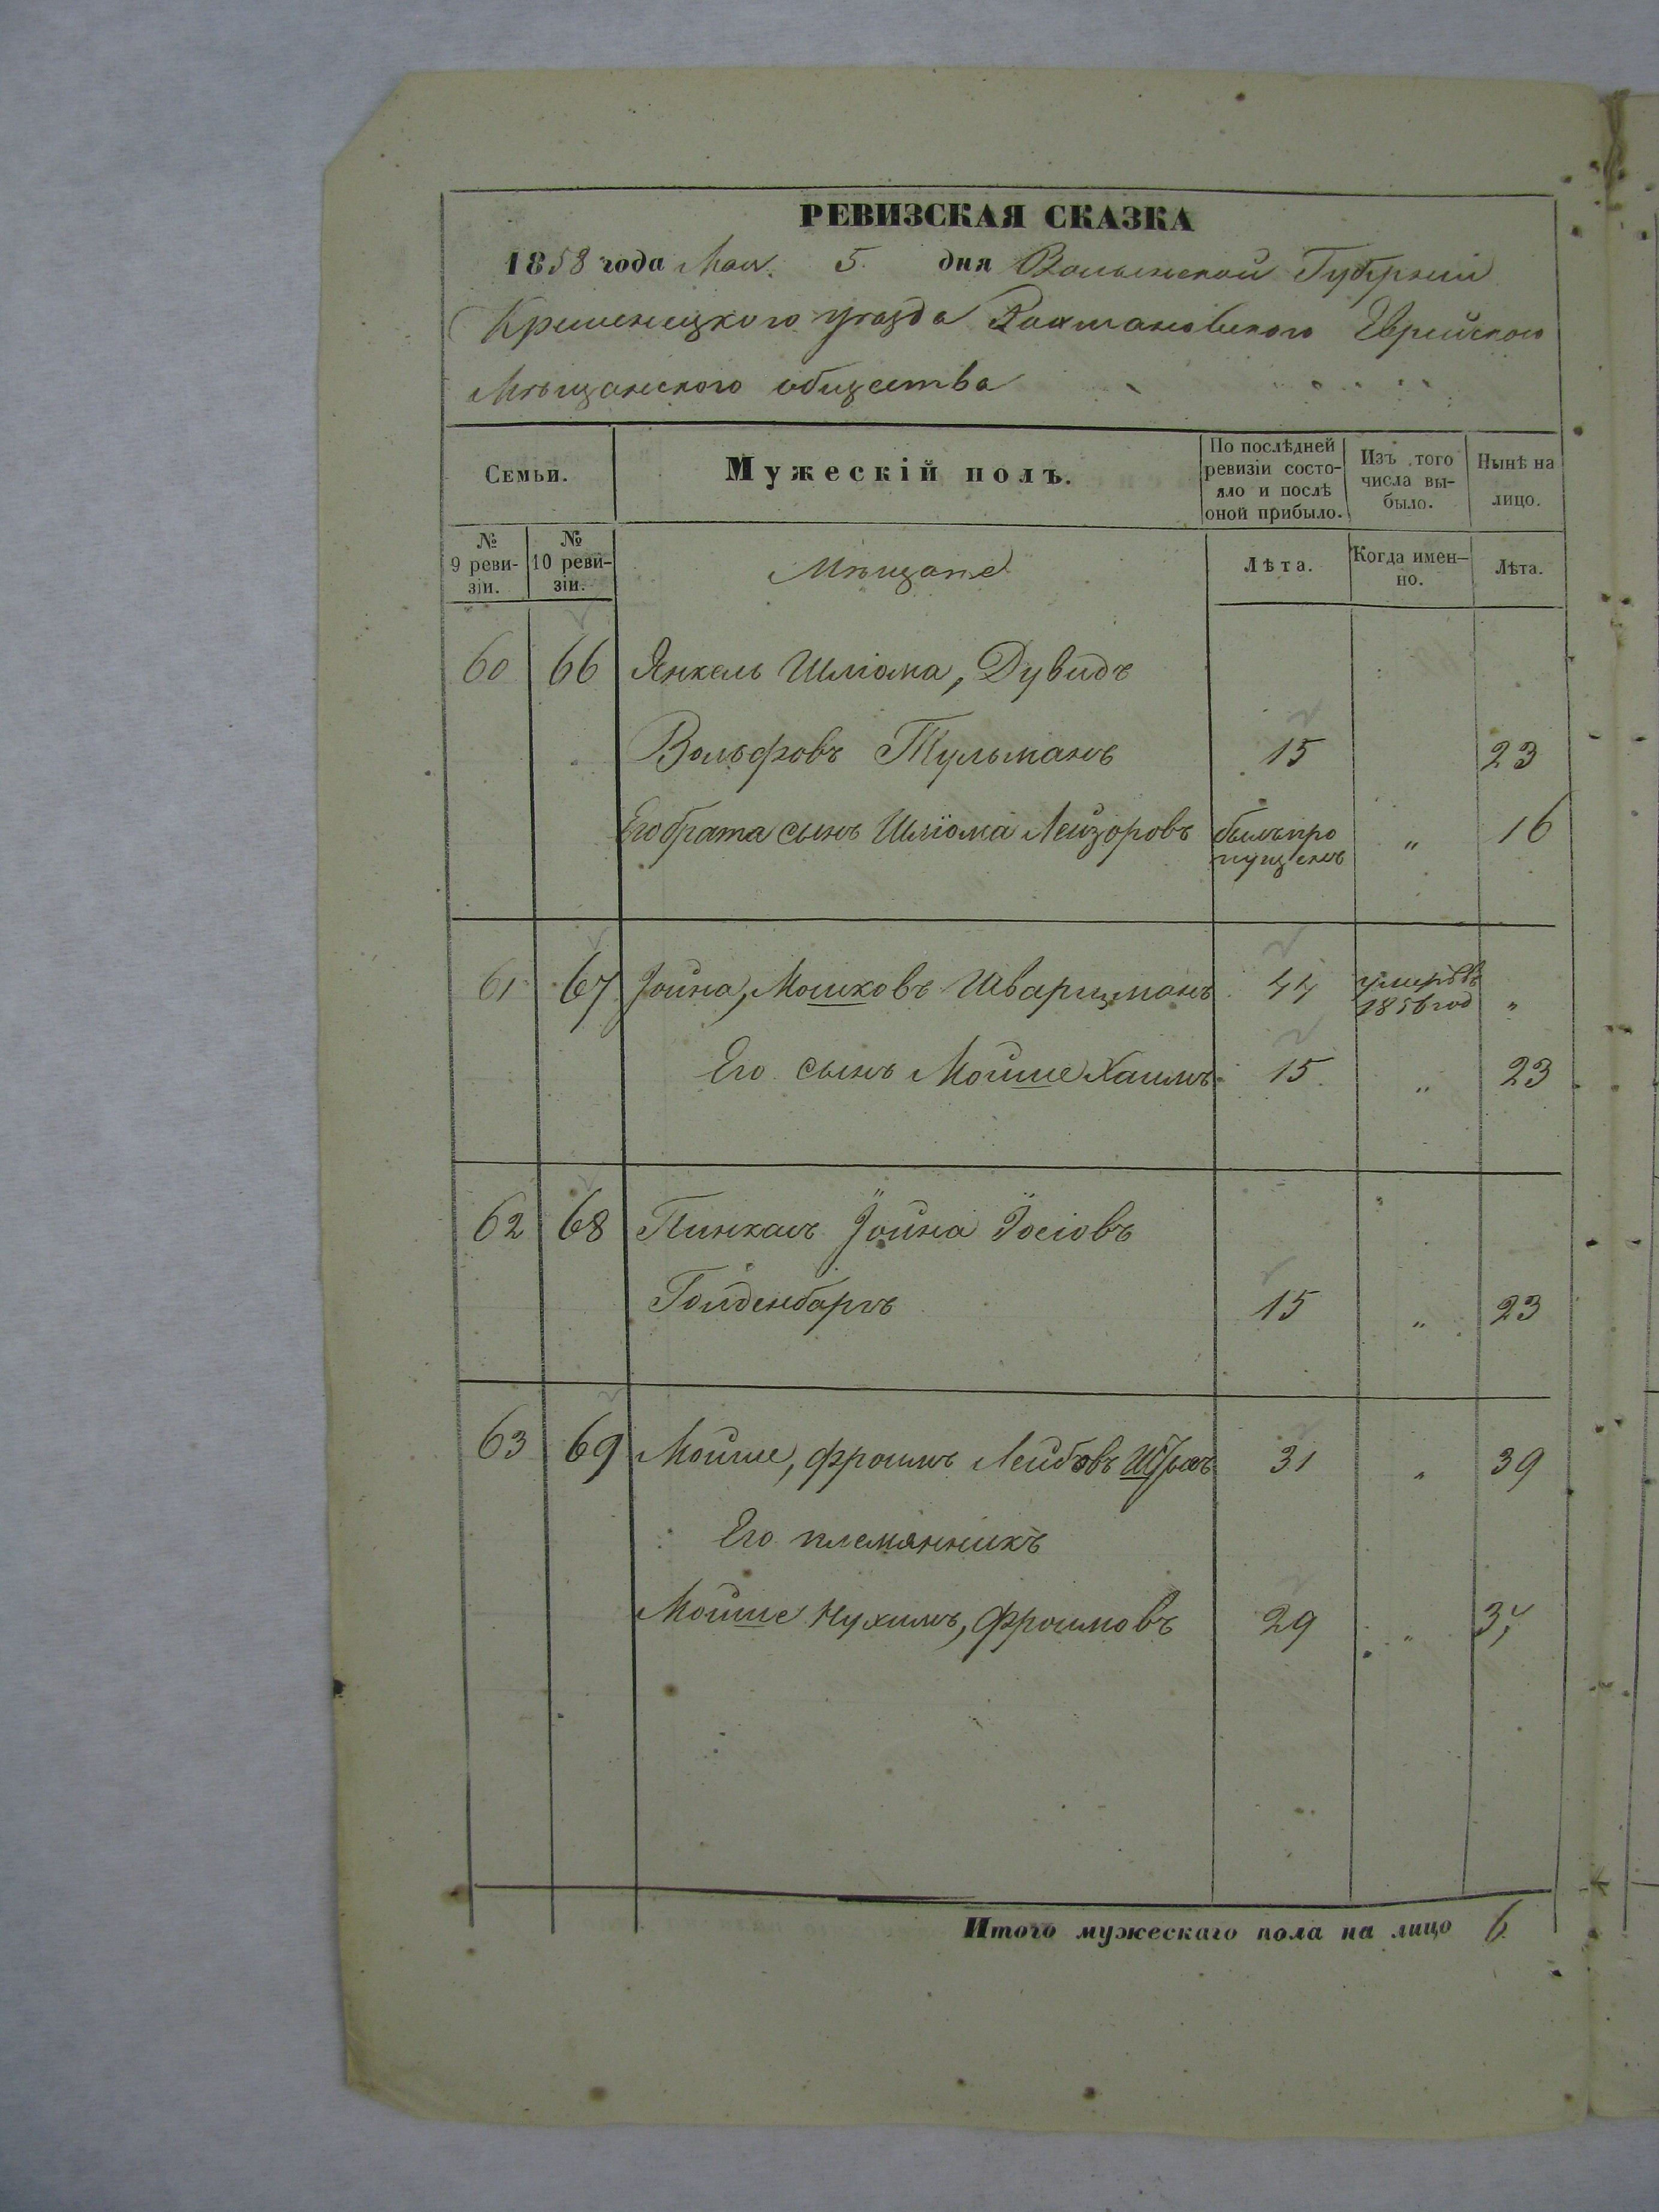 РЕВИЗСКАЯ СКАЗКА
1858 года Мая 5 дня Волынской Губерніи
Кременецкого уѣзда Рахмановского Еврейского
Мѣщанского общества
Семьи. Мужескій полъ. По послѣдней ревизіи состо-яло и послѣ оной прибыло. Изъ того числа вы-было. Нынѣ на лицо.
№ 9 реви-зіи. № 10 реви-зіи. Мѣщане Лѣта. Когда имен-но. Лѣта.
60 66 Янкель Шліома, Дувидъ
Вольфовъ Тульманъ 15 23
Его брата сынъ Шліома Лейзоровъ былъ про пущенъ „ 16
61 67 Іойна, Мошковъ Шварцманъ 44 умеръ въ 1856 год „
Его сынъ Мойше Хаимъ 15 „ 23
62 68 Пинхасъ Іойна Іосіовъ
Гойденбаргъ 15 „ 23
63 69 Мойше, Фроимъ Лейбовъ 31 „ 39
Его племянникъ
Мойше Нухимъ, Фроимовъ 29 „
Итого мужескаго пола на лицо 6